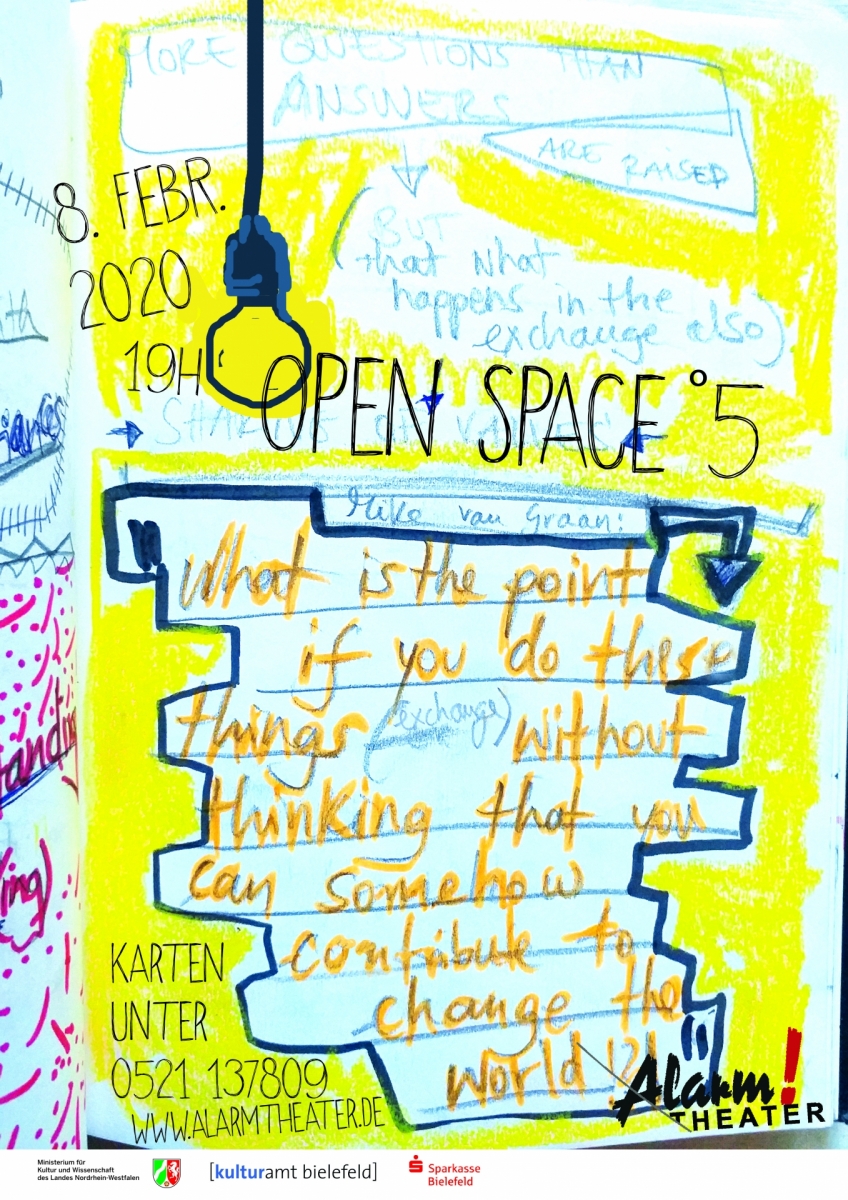 MORE QUESTIONS THAN
ANSWERS
ARE RAISED
8. FEBR.
2020
19H
(BUT
that what
happens in the
exchange also)
OPEN SPACE °5
Mike van Graan:
"What is the point
if you do these
things (exchange) without
thinking that you
can somehow
contribute to
change the
world !?!"
KARTEN
UNTER
0521 137809
WWW.ALARMTHEATER.DE
Alarm!
THEATER
Ministerium für
Kultur und Wissenschaft
des Landes Nordrhein-Westfalen
[kulturamt bielefeld]
Sparkasse
Bielefeld